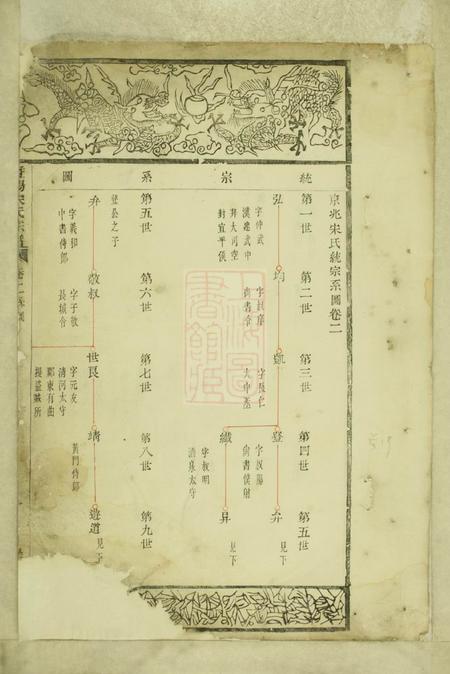 京兆宋氏統宗系圖卷二
統宗系圖
第一世 第二世 第三世 第四世 第五世
弘 均 凱 登 弁 見下
字仲武
漢建武中
拜大司空
封宣平侯
尚書令
大中丞
字叔陽
尚書僕射
纖 昇 見下
字叔明
清泉太守
第五世 第六世 第七世 第八世 第九世
登公之子
弁 敬叔 世良 靖 遊道 見下
字義和
中書侍郎
字子敬
長城令
字元友
清河太守
鄴東有曲
堤盜賊所
黃門侍郎